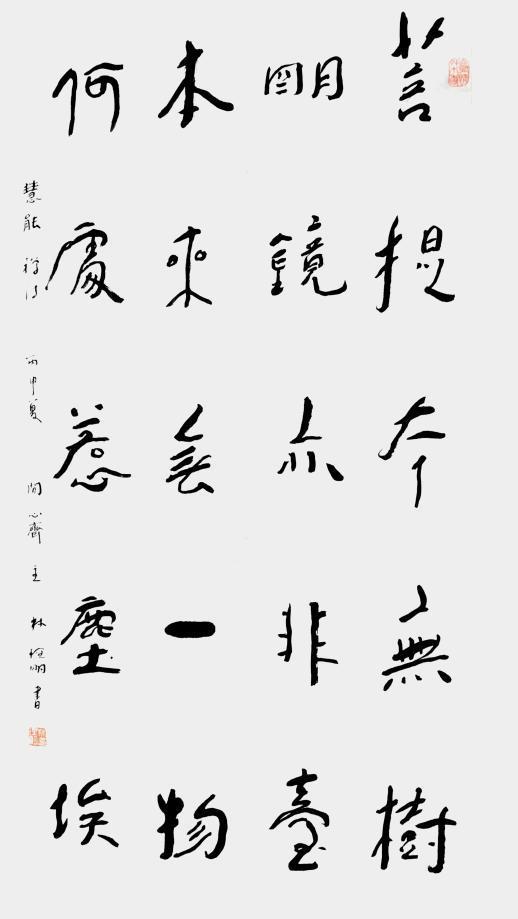 菩提本無樹
明鏡亦非臺
本來無一物
何處惹塵埃
慧能禪詩 丙申夏 閒心齋主 林 書